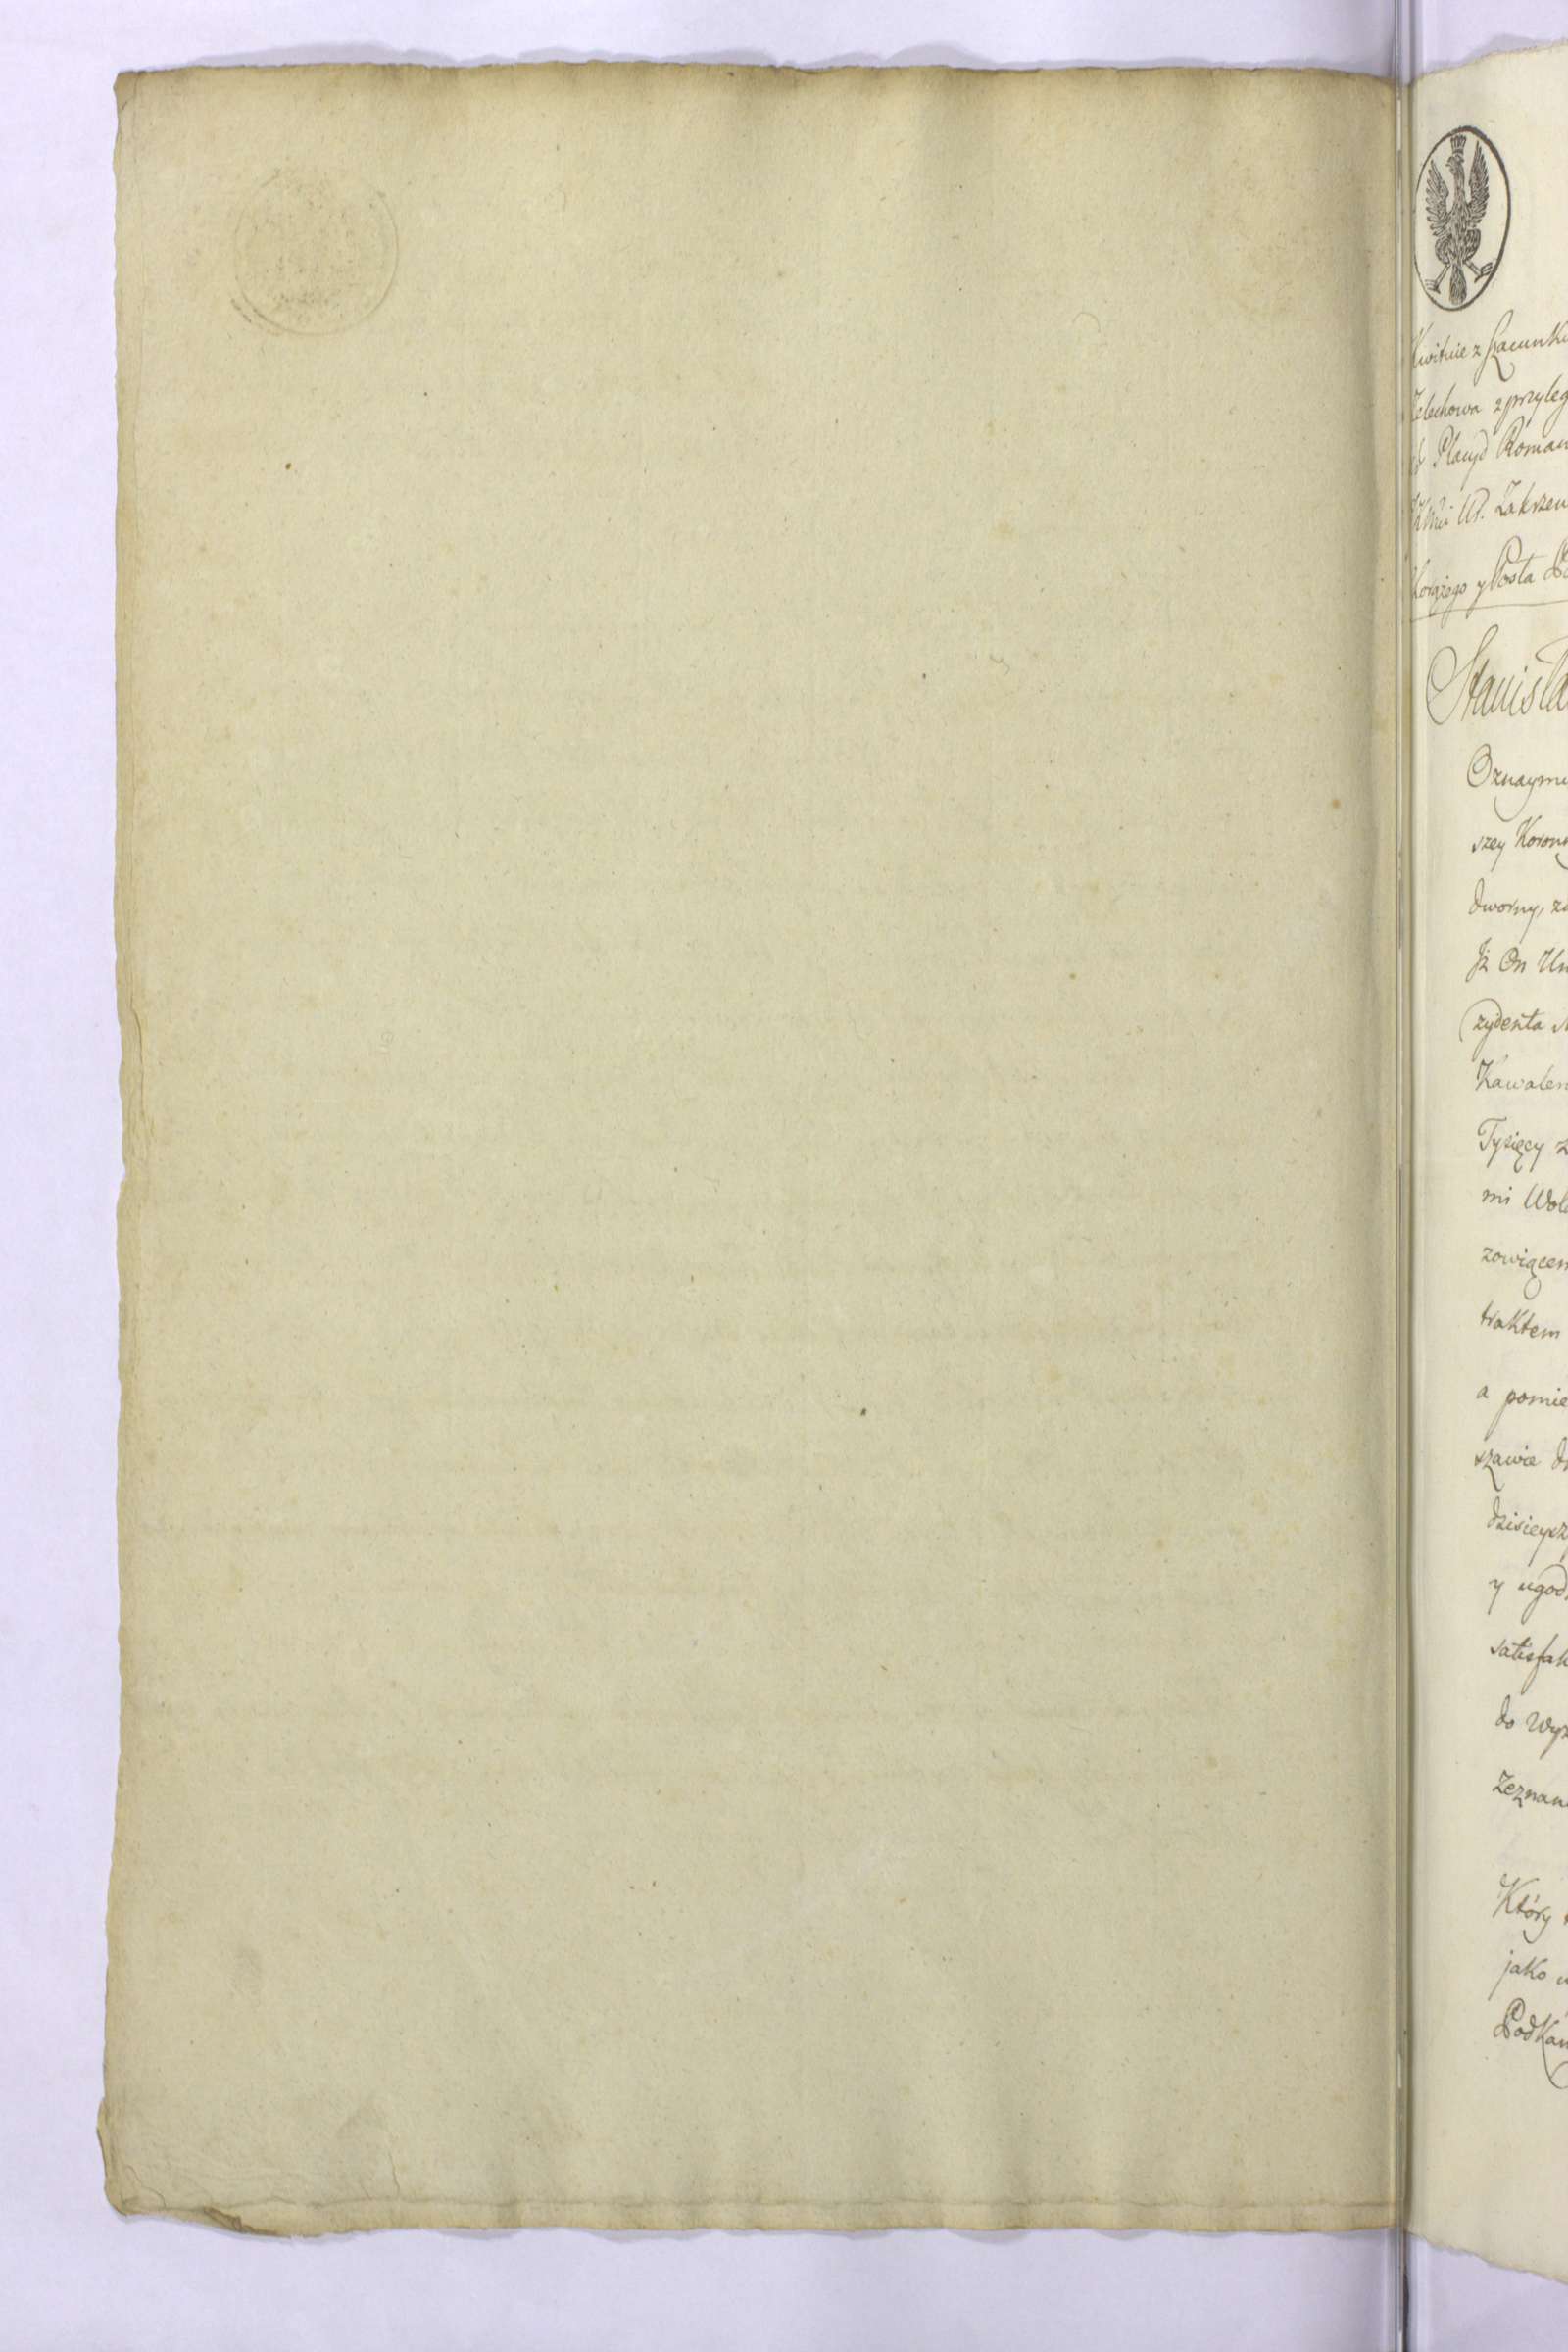 Kwituie z Szacunku
Zelechowa z przyleg
Placyd Roman
W. Zakrzew
Chorążego y Posła Po
Stanisła
Oznaymu
szey Korony
dworny, za
Jż On Ur
zydenta
Kawaler
Tysięcy z
mi Wola
zowiącem
traktem
a pomie
szawie d
dzisieysz
y ugod
satisfak
do Wyz
Zeznan
Który
jako
PodKan